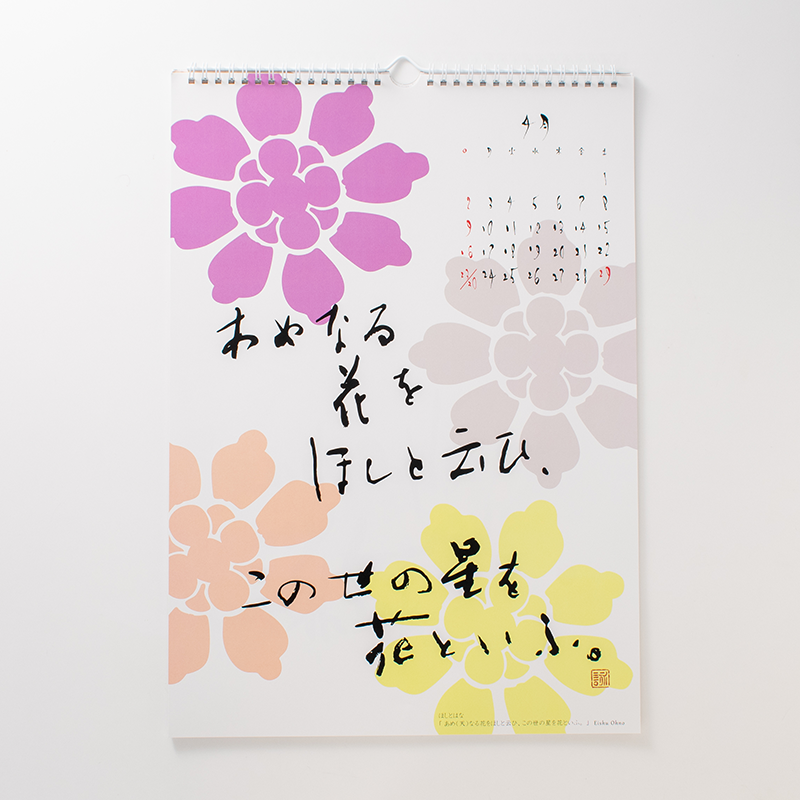 4月
日 月 火 水 木 金 土
1
2 3 4 5 6 7 8
9 10 11 12 13 14 15
16 17 18 19 20 21 22
23/30 24 25 26 27 28 29
あめなる
花を
ほしと云ひ、
この世の星を
花といふ。
ほしとはな
「あめ(天)なる花をほしと云ひ、この世の星を花といふ。」 Eishu Ohno